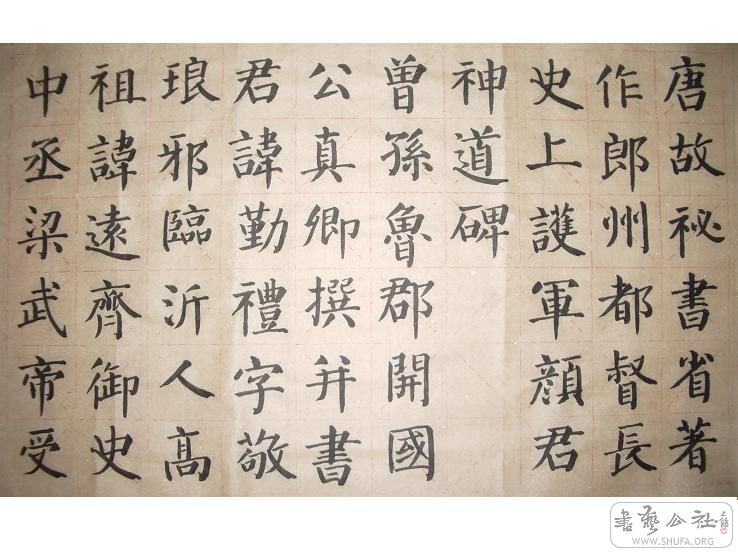 唐故祕書省著
作郎州都督長
史上護軍顏君
神道碑
曾孫魯郡開國
公真卿撰并書
君諱勤禮字敬
琅邪臨沂人高
祖諱遠齊御史
中丞梁武帝受
書藝公社
WWW.SHUFA.ORG